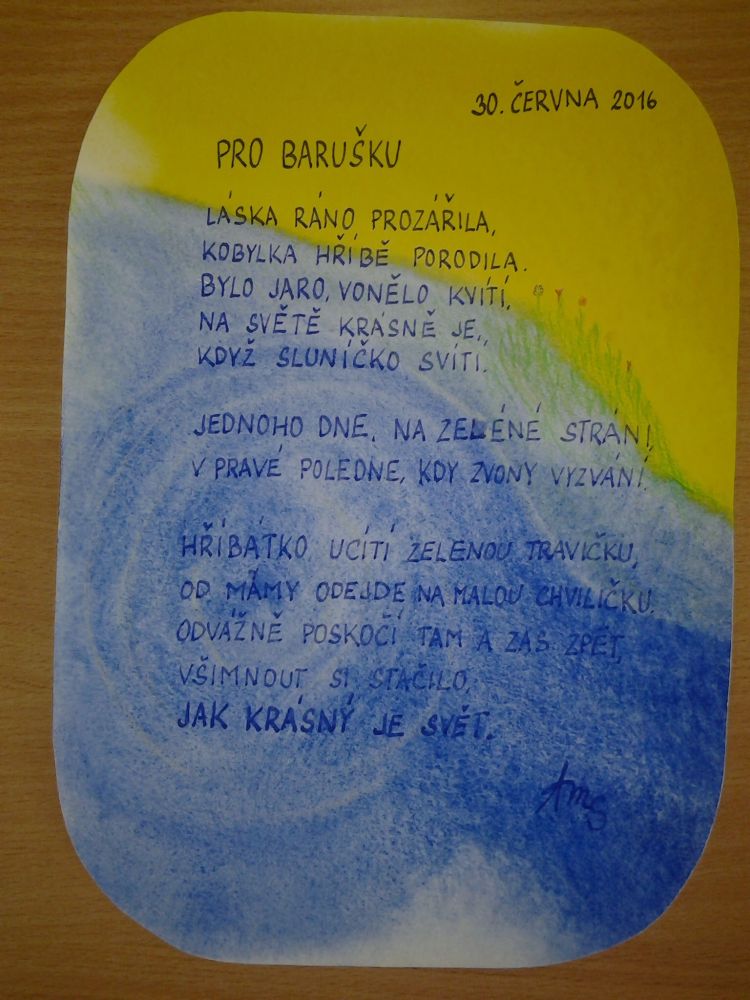 30. ČERVNA 2016
PRO BARUŠKU
LÁSKA RÁNO PROZÁŘILA,
KOBYLKA HŘÍBĚ PORODILA.
BYLO JARO, VONĚLO KVÍTÍ,
NA SVĚTĚ KRÁSNĚ JE,
KDYŽ SLUNÍČKO SVÍTÍ.
JEDNOHO DNE, NA ZELÉNÉ STRÁNI,
V PRAVÉ POLEDNE, KDY ZVONY VYZVÁNÍ.
HŘÍBÁTKO UCÍTÍ ZELENOU TRAVIČKU,
OD MÁMY ODEJDE NA MALOU CHVILIČKU.
ODVÁŽNĚ POSKOČÍ TAM A ZAS ZPĚT,
VŠIMNOUT SI STAČILO,
JAK KRÁSNÝ JE SVĚT.